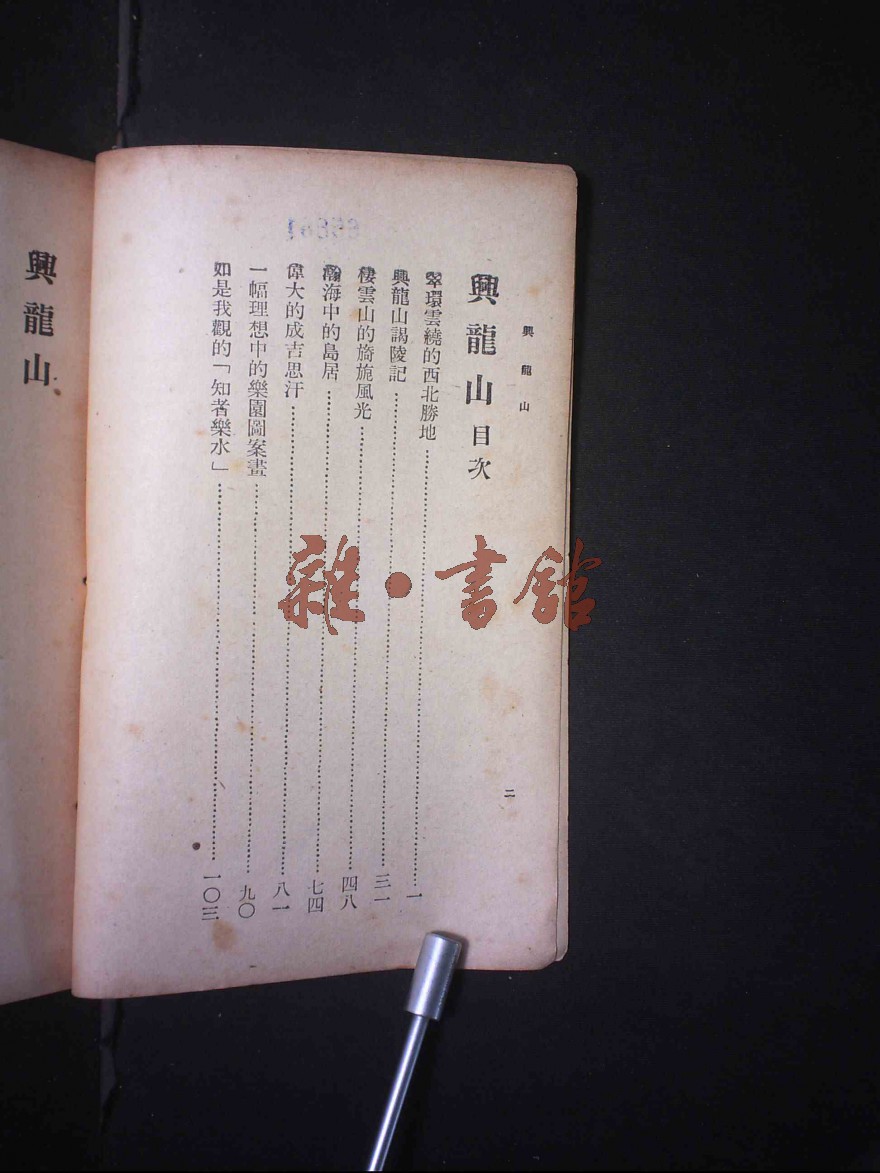 興龍山
二
興龍山目次
翠環雲繞的西北勝地……一
興龍山謁陵記……三一
棲雲山的旖旎風光……四八
瀚海中的島居……七四
偉大的成吉思汗……八一
一幅理想中的樂園圖案畫……九〇
如是我觀的「知者樂水」……一〇三
興龍山
雜·書館